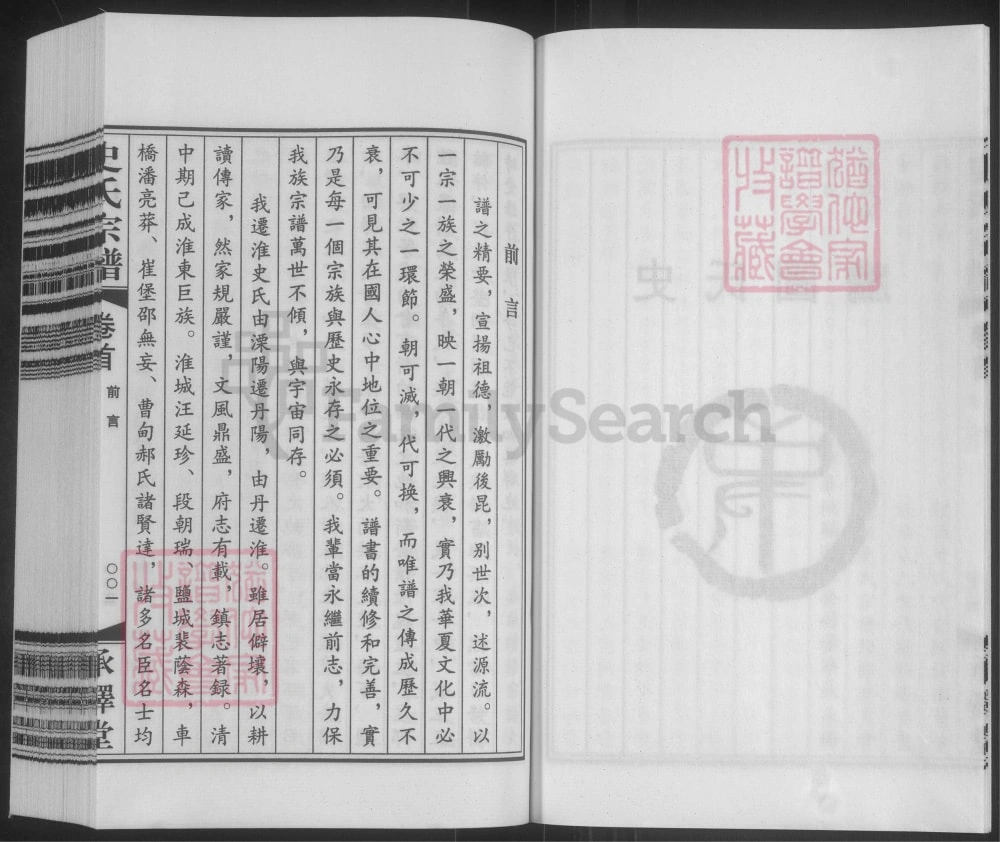 前言
譜之精要，宣揚祖德，激勵後昆，別世次，述源流。以
一宗一族之榮盛，映一朝一代之興衰，實乃我華夏文化中必
不可少之一環節。朝可滅，代可換，而唯譜之傳成歷久不
衰，可見其在國人心中地位之重要。譜書的續修和完善，實
乃是每一個宗族與歷史永存之必須。我輩當永繼前志，力保
我族宗譜萬世不傾，與宇宙同存。
我遷淮史氏由溧陽遷丹陽，由丹遷淮。雖居僻壤，以耕
讀傳家，然家規嚴謹，文風鼎盛，府志有載，鎮志著録。清
中期己成淮東巨族。淮城汪延珍、段朝瑞、鹽城裴蔭森，車
橋潘亮莽、崔堡邵無妄、曹甸郝氏諸賢達，諸多名臣名士均
史氏宗譜
卷首
前言
〇〇一
承澤堂
猶他家
譜學會
收藏
猶他家
譜學會
收藏
FamilySearch